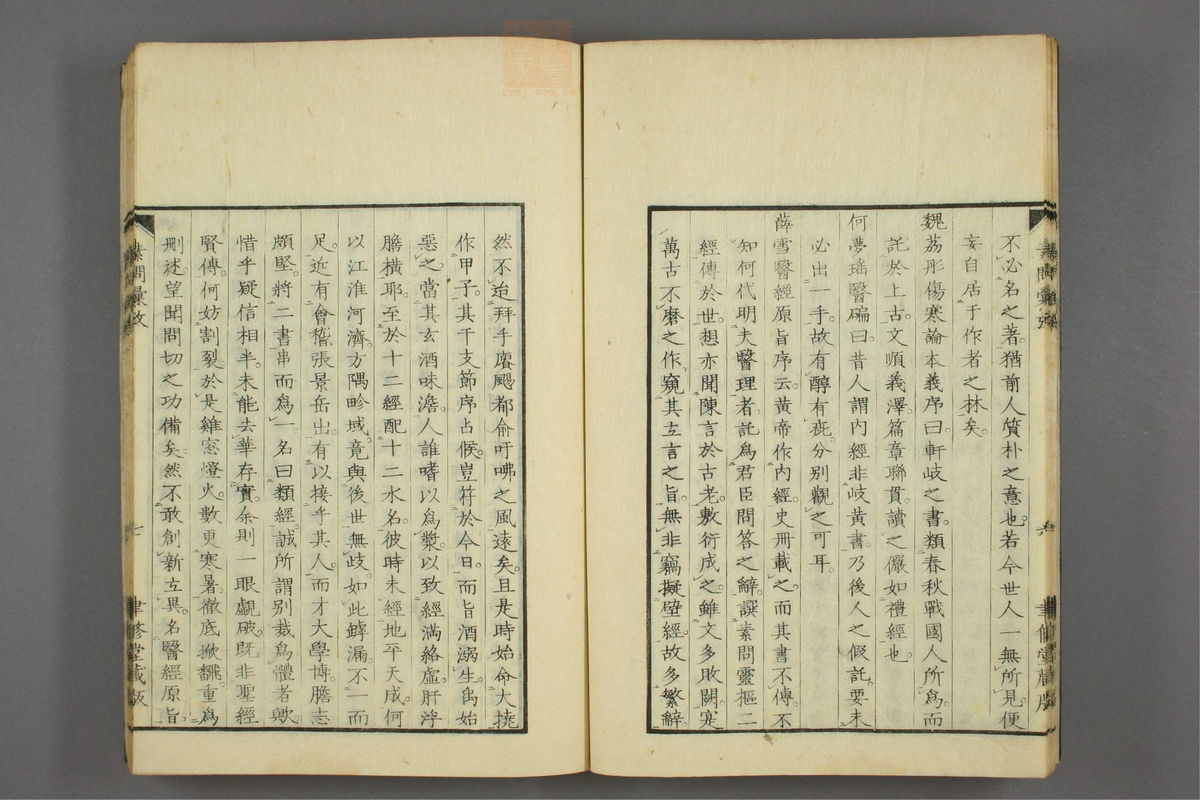 不必名之著。猶前人質朴之意也。若今世人一無所見。便
妄自居于作者之林矣。
魏荔彤傷寒論本義序曰。軒岐之書。類春秋戰國人所爲。而
託於上古。文順義澤。篇章聯貫。讀之儼如禮經也。
何夢瑶醫碥曰。昔人謂內經非岐黃書。乃後人之假託。要未
必出一手。故有醇有疵。分別觀之可耳。
薛雪醫經原旨序云。黃帝作內經。史冊載之。而其書不傳。不
知何代明夫醫理者。託爲君臣問答之辭。譔素問靈樞二
經傳於世。想亦聞陳言於古老。敷衍成之。雖文多敗闕。寔
萬古不磨之作。窺其立言之旨。無非竊擬壁經。故多繁辭。
然不迨拜手賡颺都俞吁咈之風遠矣。且是時始命大撓
作甲子。其干支節序占候。豈符於今日。而旨酒溺生。禹始
惡之。當其玄酒味澹。人誰嗜以爲漿。以致經滿絡虛。肝浮
膽橫耶。至於十二經配十二水名。彼時未經地平天成。何
以江淮河濟。方隅畛域。竟與後世無歧。如此罅漏。不一而
足。近有會稽張景岳出。有以接乎其人。而才大學博。膽志
頗堅。將二書串而爲一。名曰類經。誠所謂別裁爲體者歟。
惜乎疑信相半。未能去華存實。余則一眼覷破。既非聖經
賢傳。何妨割裂。於是雞窓燈火。數更寒暑。徹底掀飜。重爲
刪述。望聞問切之功備矣。然不敢創新立異。名醫經原旨。
素問彙攷
七
聿修堂藏版